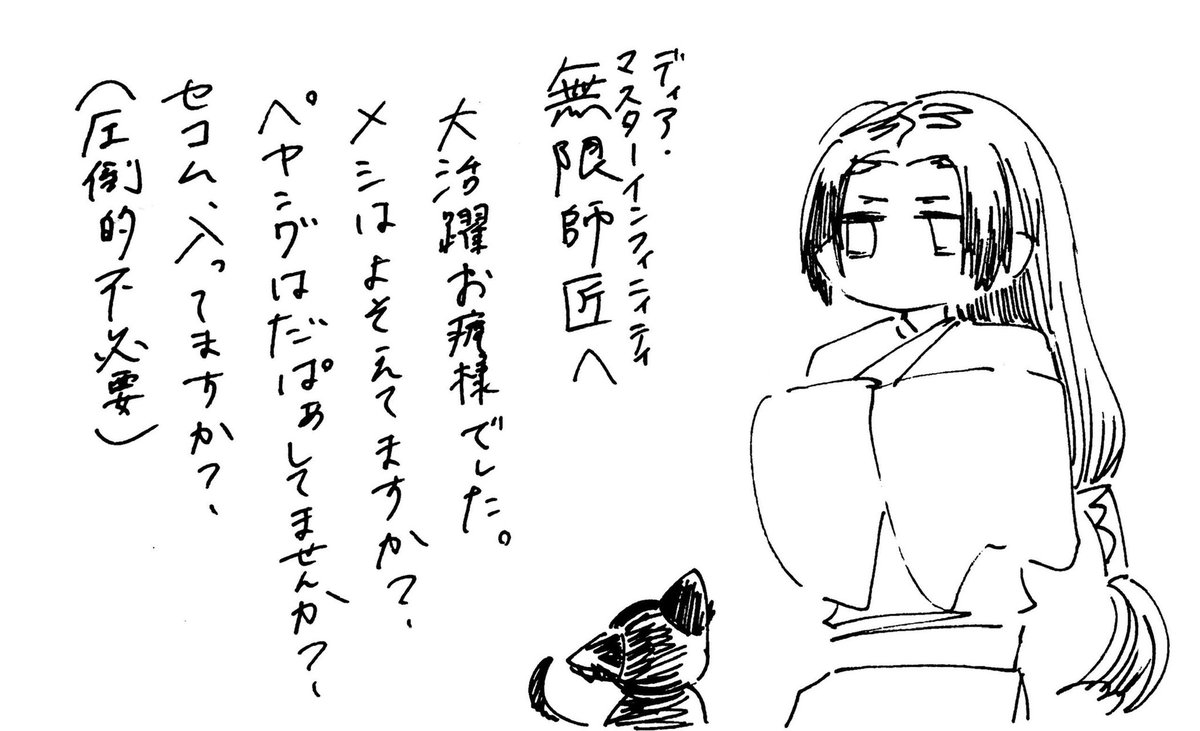 ディア・
マスターインフィニティ
無限師匠へ
大活躍お疲様でした。
メシはよそえてますか？
ペヤングはだばぁしてませんか？
セコム、入ってますか？
（圧倒的不必要）